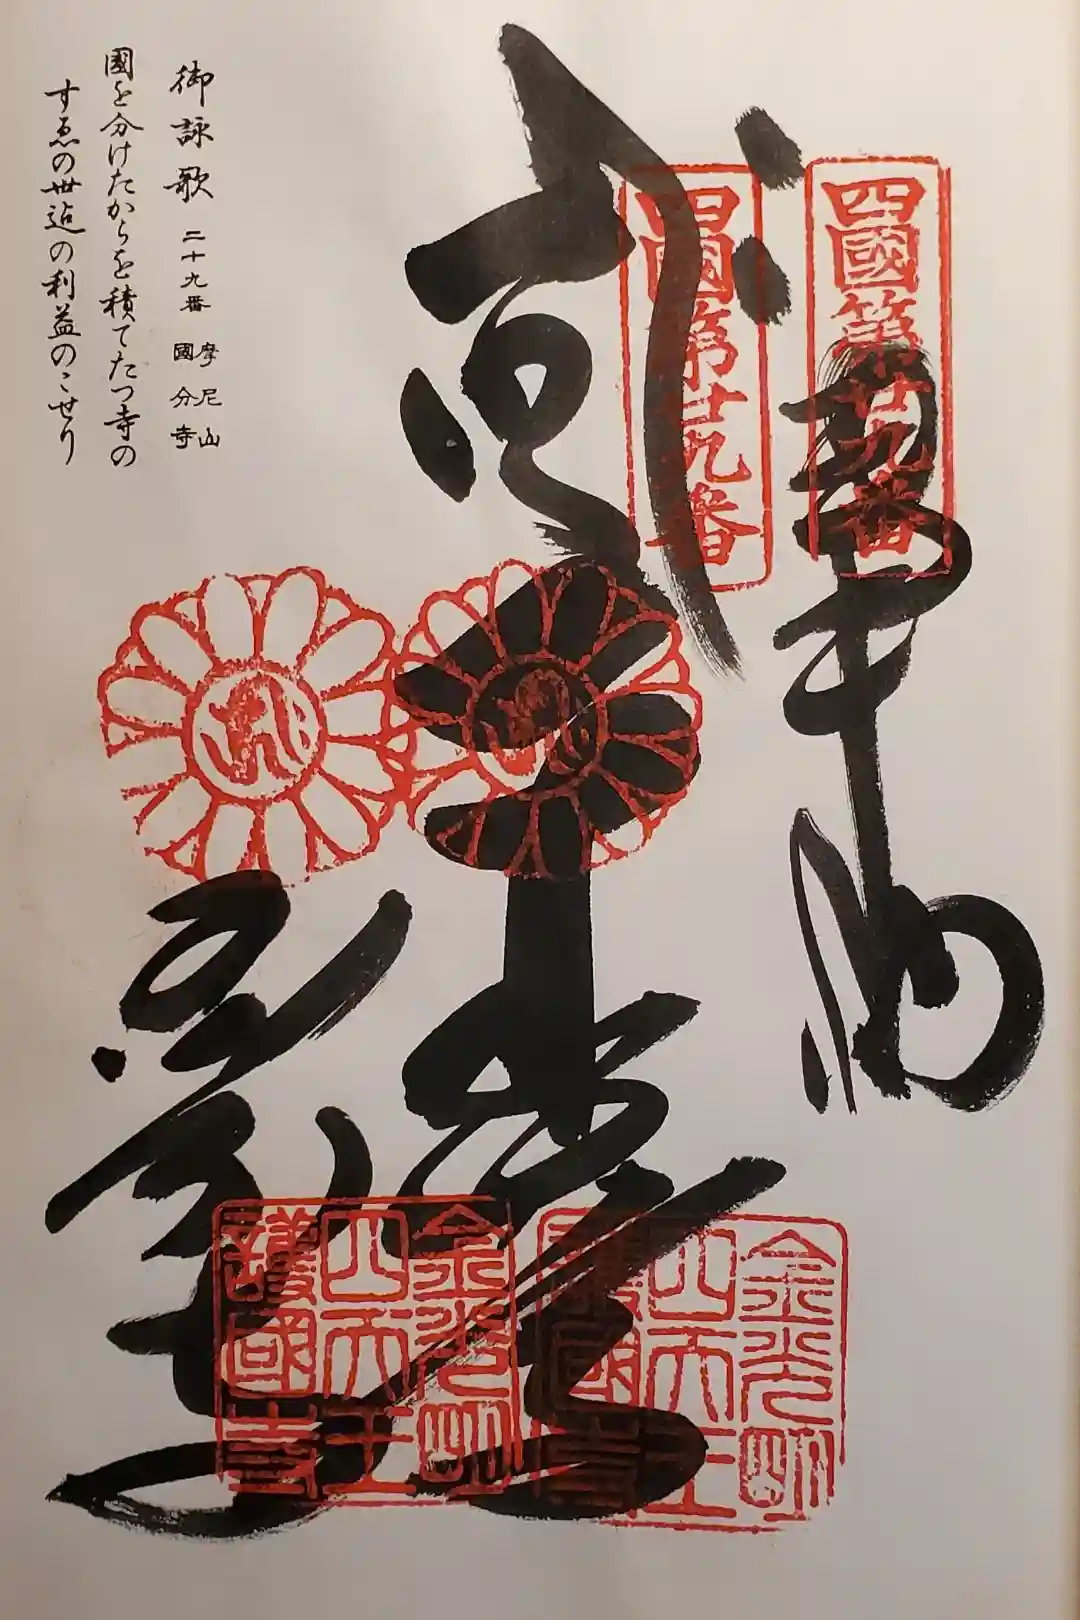 四國第廿九番
四國第廿九番
奉納
千手
堂
金光明
四天王
護國寺
金光明
四天王
護國寺
御詠歌 二十九番 摩尼山 國分寺
國を分けたからを積てたつ寺の
すゑの世迠の利益のこせり